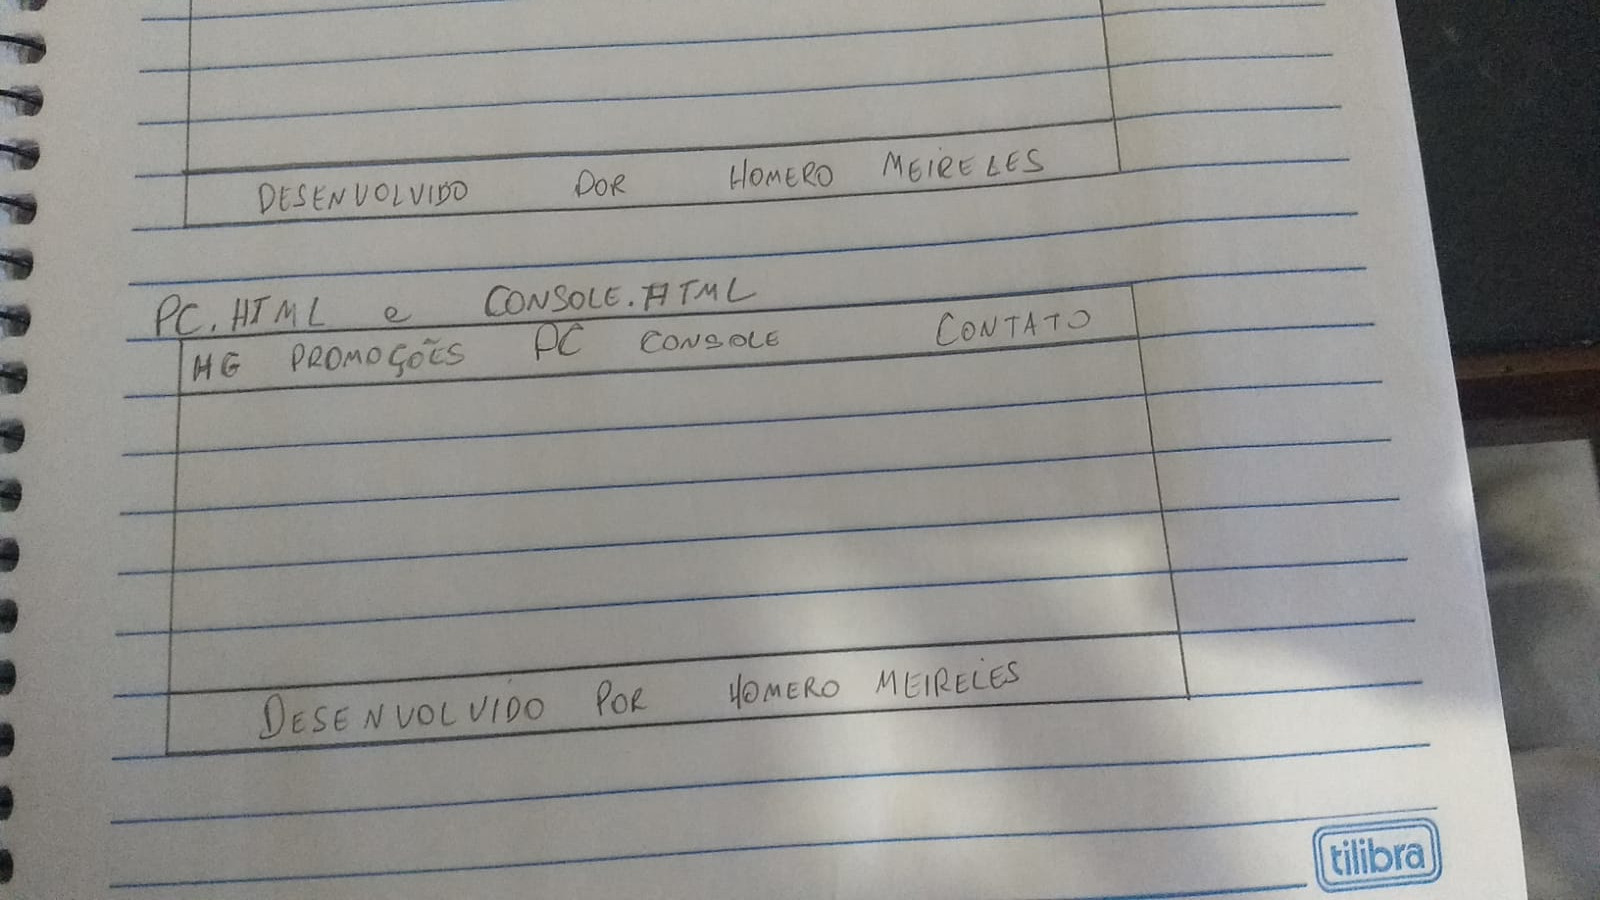 DESENVOLVIDO POR HOMERO MEIRELES
PC.HTML e CONSOLE.HTML
HG PROMOÇÕES PC CONSOLE CONTATO
DESENVOLVIDO POR HOMERO MEIRELES
tilibra